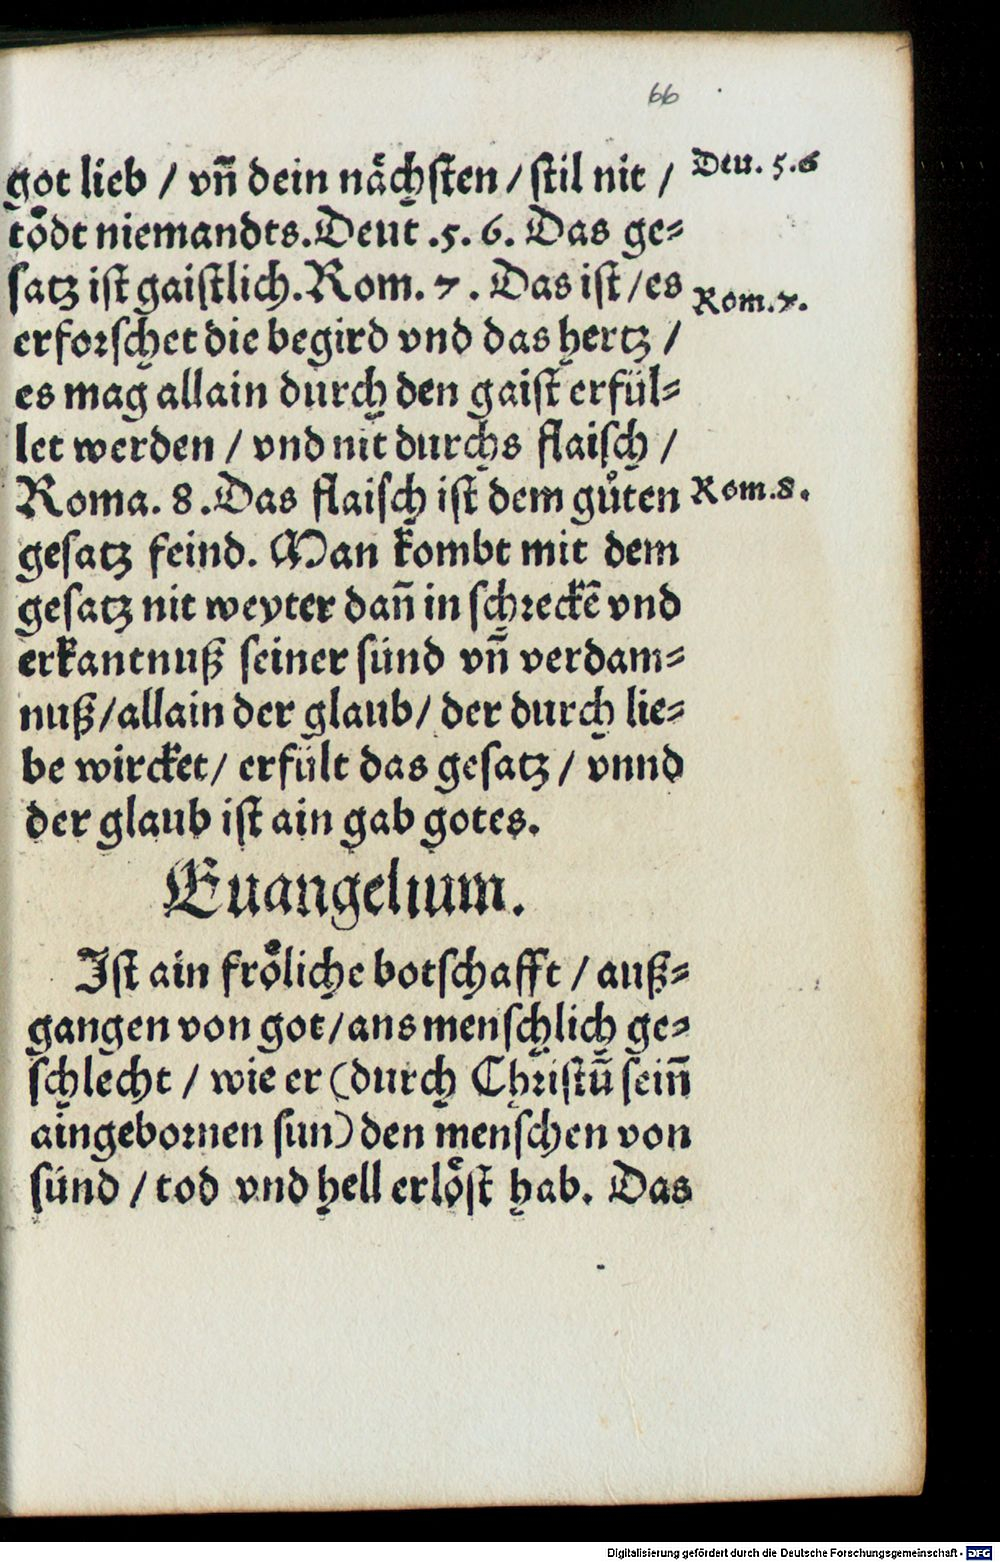 66
got lieb / vñ dein nächsten / stil nit / Deu. 5.6
tödt niemandts. Deut .5. 6. Das ge⸗
satz ist gaistlich. Rom. 7 . Das ist / es Rom.7.
erforschet die begird vnd das hertz /
es mag allain durch den gaist erfül⸗
let werden / vnd nit durchs flaisch /
Roma. 8 . Das flaisch ist dem gůten Rom.8.
gesatz feind. Man kombt mit dem
gesatz nit weyter dañ in schreckẽ vnd
erkantnuß seiner sünd vñ verdam⸗
nuß / allain der glaub / der durch lie⸗
be wircket / erfült das gesatz / vnnd
der glaub ist ain gab gotes.
Euangelium.
Ist ain fröliche botschafft / auß⸗
gangen von got / ans menschlich ge⸗
schlecht / wie er (durch Christũ seiñ
aingebornen sun) den menschen von
sünd / tod vnd hell erlöst hab. Das
Digitalisierung gefördert durch die Deutsche Forschungsgemeinschaft - DFG